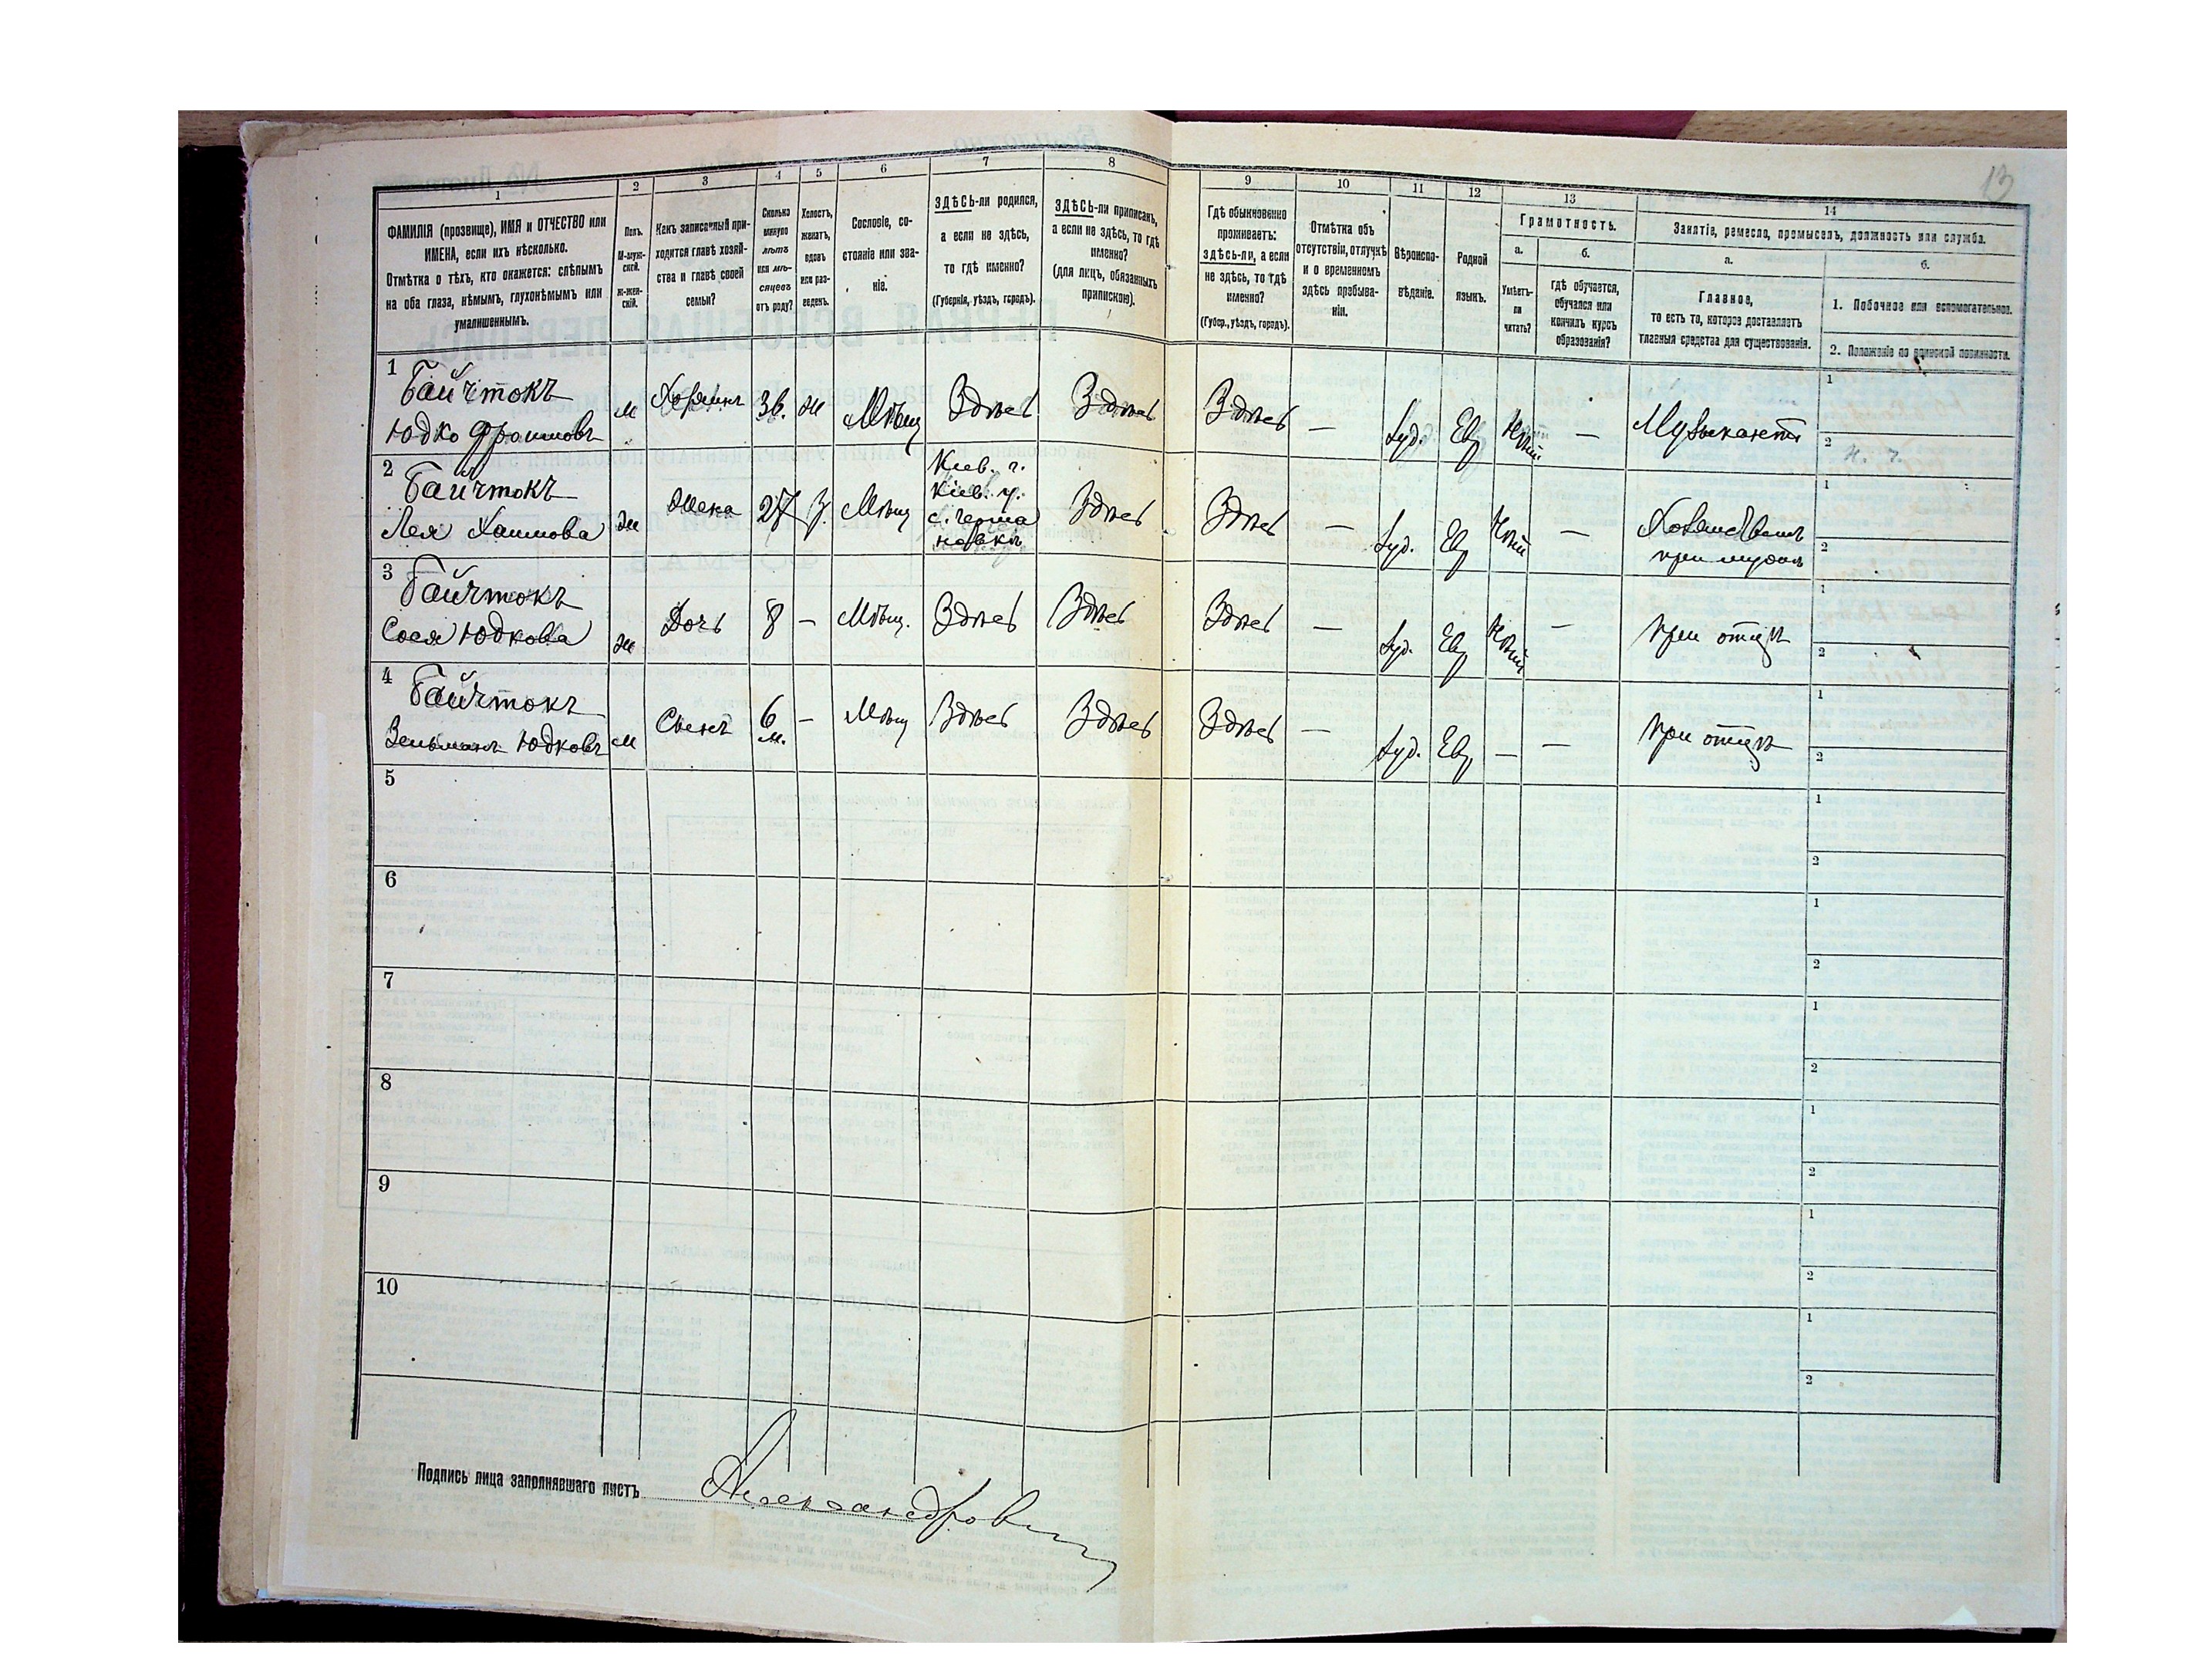 13
1 2 3 4 5 6 7 8 9 10 11 12 13 14
ФАМИЛІЯ (прозвище), ИМЯ и ОТЧЕСТВО или
ИМЕНА, если ихъ нѣсколько.
Отмѣтка о тѣхъ, кто окажется: слѣпымъ
на оба глаза, нѣмымъ, глухонѣмымъ или
умалишеннымъ.
Полъ.
М-муж-
ской.
ж-жен-
скій.
Какъ записанный при-
ходится главѣ хозяй-
ства и главѣ своей
семьи?
Сколько
минуло
лѣтъ
или мѣ-
сяцевъ
отъ роду?
Холостъ,
женатъ,
вдовъ
или раз-
веденъ.
Сословіе, со-
стояніе или зва-
ніе.
ЗДѢСЬ-ли родился,
а если не здѣсь,
то гдѣ именно?
(Губернія, уѣздъ, городъ).
ЗДѢСЬ-ли приписанъ,
а если не здѣсь, то гдѣ
именно?
(для лицъ, обязанныхъ
припискою).
Гдѣ обыкновенно
проживаетъ:
здѣсь-ли, а если
не здѣсь, то гдѣ
именно?
(Губер., уѣздъ, городъ).
Отмѣтка объ
отсутствіи, отлучкѣ
и о временномъ
здѣсь пребыва-
ніи.
Вѣроиспо-
вѣданіе.
Родной
языкъ.
Грамотность.
а. б.
Умѣетъ-
ли
читать?
гдѣ обучается,
обучался или
кончилъ курсъ
образованія?
Занятіе, ремесло, промыселъ, должность или служба.
а. б.
Главное,
то есть то, которое доставляетъ
главныя средства для существованія.
1. Побочное или вспомогательное.
2. Положеніе по воинской повинности.
1 Байчтокъ
Юдко м Хозяинъ 36. ж Мѣщ Здѣсь Здѣсь Здѣсь — Іуд. Ев Нѣтъ — Музыкантъ 1
2 н. ч.
2 Байчтокъ
Лея Хаимова ж Жена 27 З. Мѣщ
Кіев. г.
Кіев. у.
Здѣсь Здѣсь — Іуд. Ев Нѣтъ —
при мужѣ
1
2
3 Байчтокъ
Сося Юдкова ж Дочь 8 — Мѣщ. Здѣсь Здѣсь Здѣсь — Іуд. Ев Нѣтъ — при отцѣ 1
2
4 Байчтокъ
Зельманъ Юдковъ м Сынъ 6 м. — Мѣщ Здѣсь Здѣсь Здѣсь — Іуд. Ев — — при отцѣ 1
2
5 1
2
6 1
2
7 1
2
8 1
2
9 1
2
10 1
2
Подпись лица заполнявшаго листъ